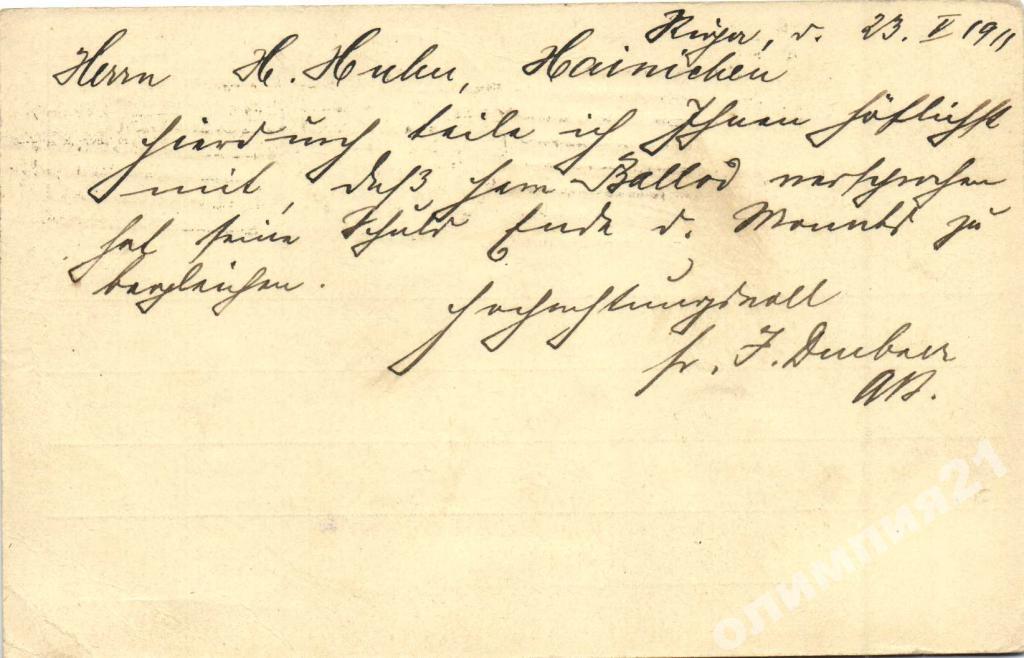 Riga, d. 23. V 1911
Herrn H. Huhn, Hainichen
Hierdurch teile ich Ihnen höflichst
mit, daß Herr Ballod versprochen
hat seine Schuld Ende d. Monats zu
begleichen.
Hochachtungsvoll
J.
AB.
олимпия21